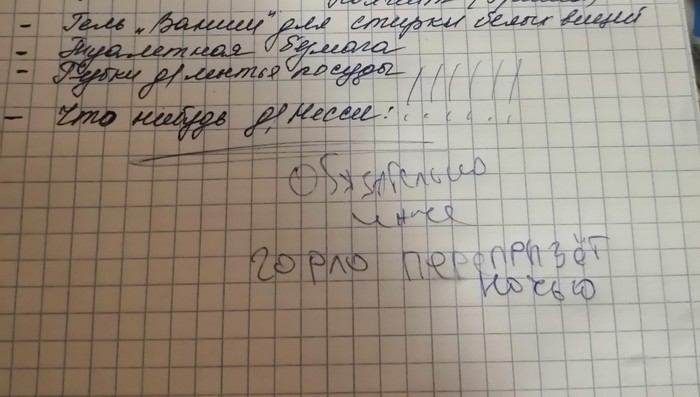 - Гель „Ваниш" для стирки белых вещей
- Туалетная бумага
- Губки д/мытья посуды
- Что нибудь д/Несси: !!!!!!
Обязательно
иначе
горло перегрызёт
ночью